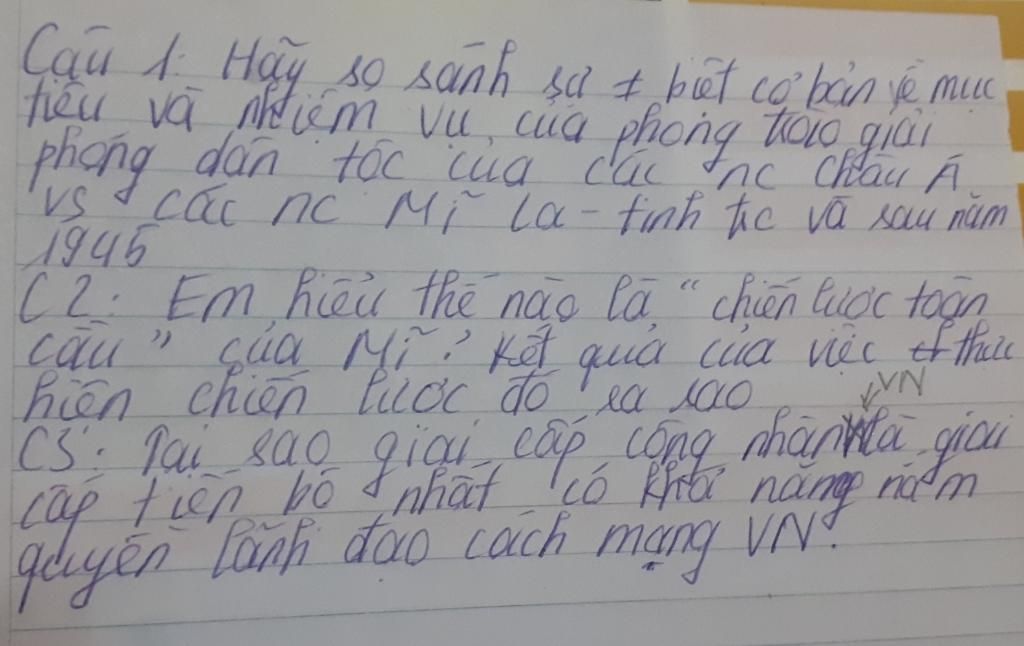 Câu 1: Hãy so sánh sự ≠ biệt cơ bản về mục
tiêu và nhiệm vụ của phong trào giải
phóng dân tộc của các nc châu Á
vs các nc Mĩ La-tinh tc và sau năm
1945
C2: Em hiểu thế nào là "chiến lược toàn
cầu" của Mĩ? Kết quả của việc thực
hiện chiến lược đó ra sao
VN
C3: Tại sao giai cấp công nhân là giai
cấp tiến bộ nhất có khả năng nắm
quyền lãnh đạo cách mạng VN?